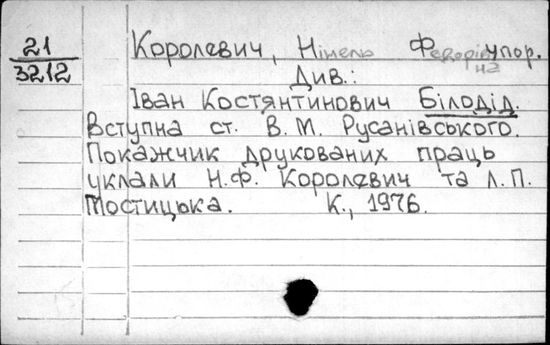 21
3212
Королевич, Нінель Федорівна упор.
Див.:
Іван Костянтинович Білодід.
Вступна ст. В.М. Русанівського.
Покажчик друкованих праць
уклали Н.Ф. Королевич та Л.П.
Мостицька. К., 1976.